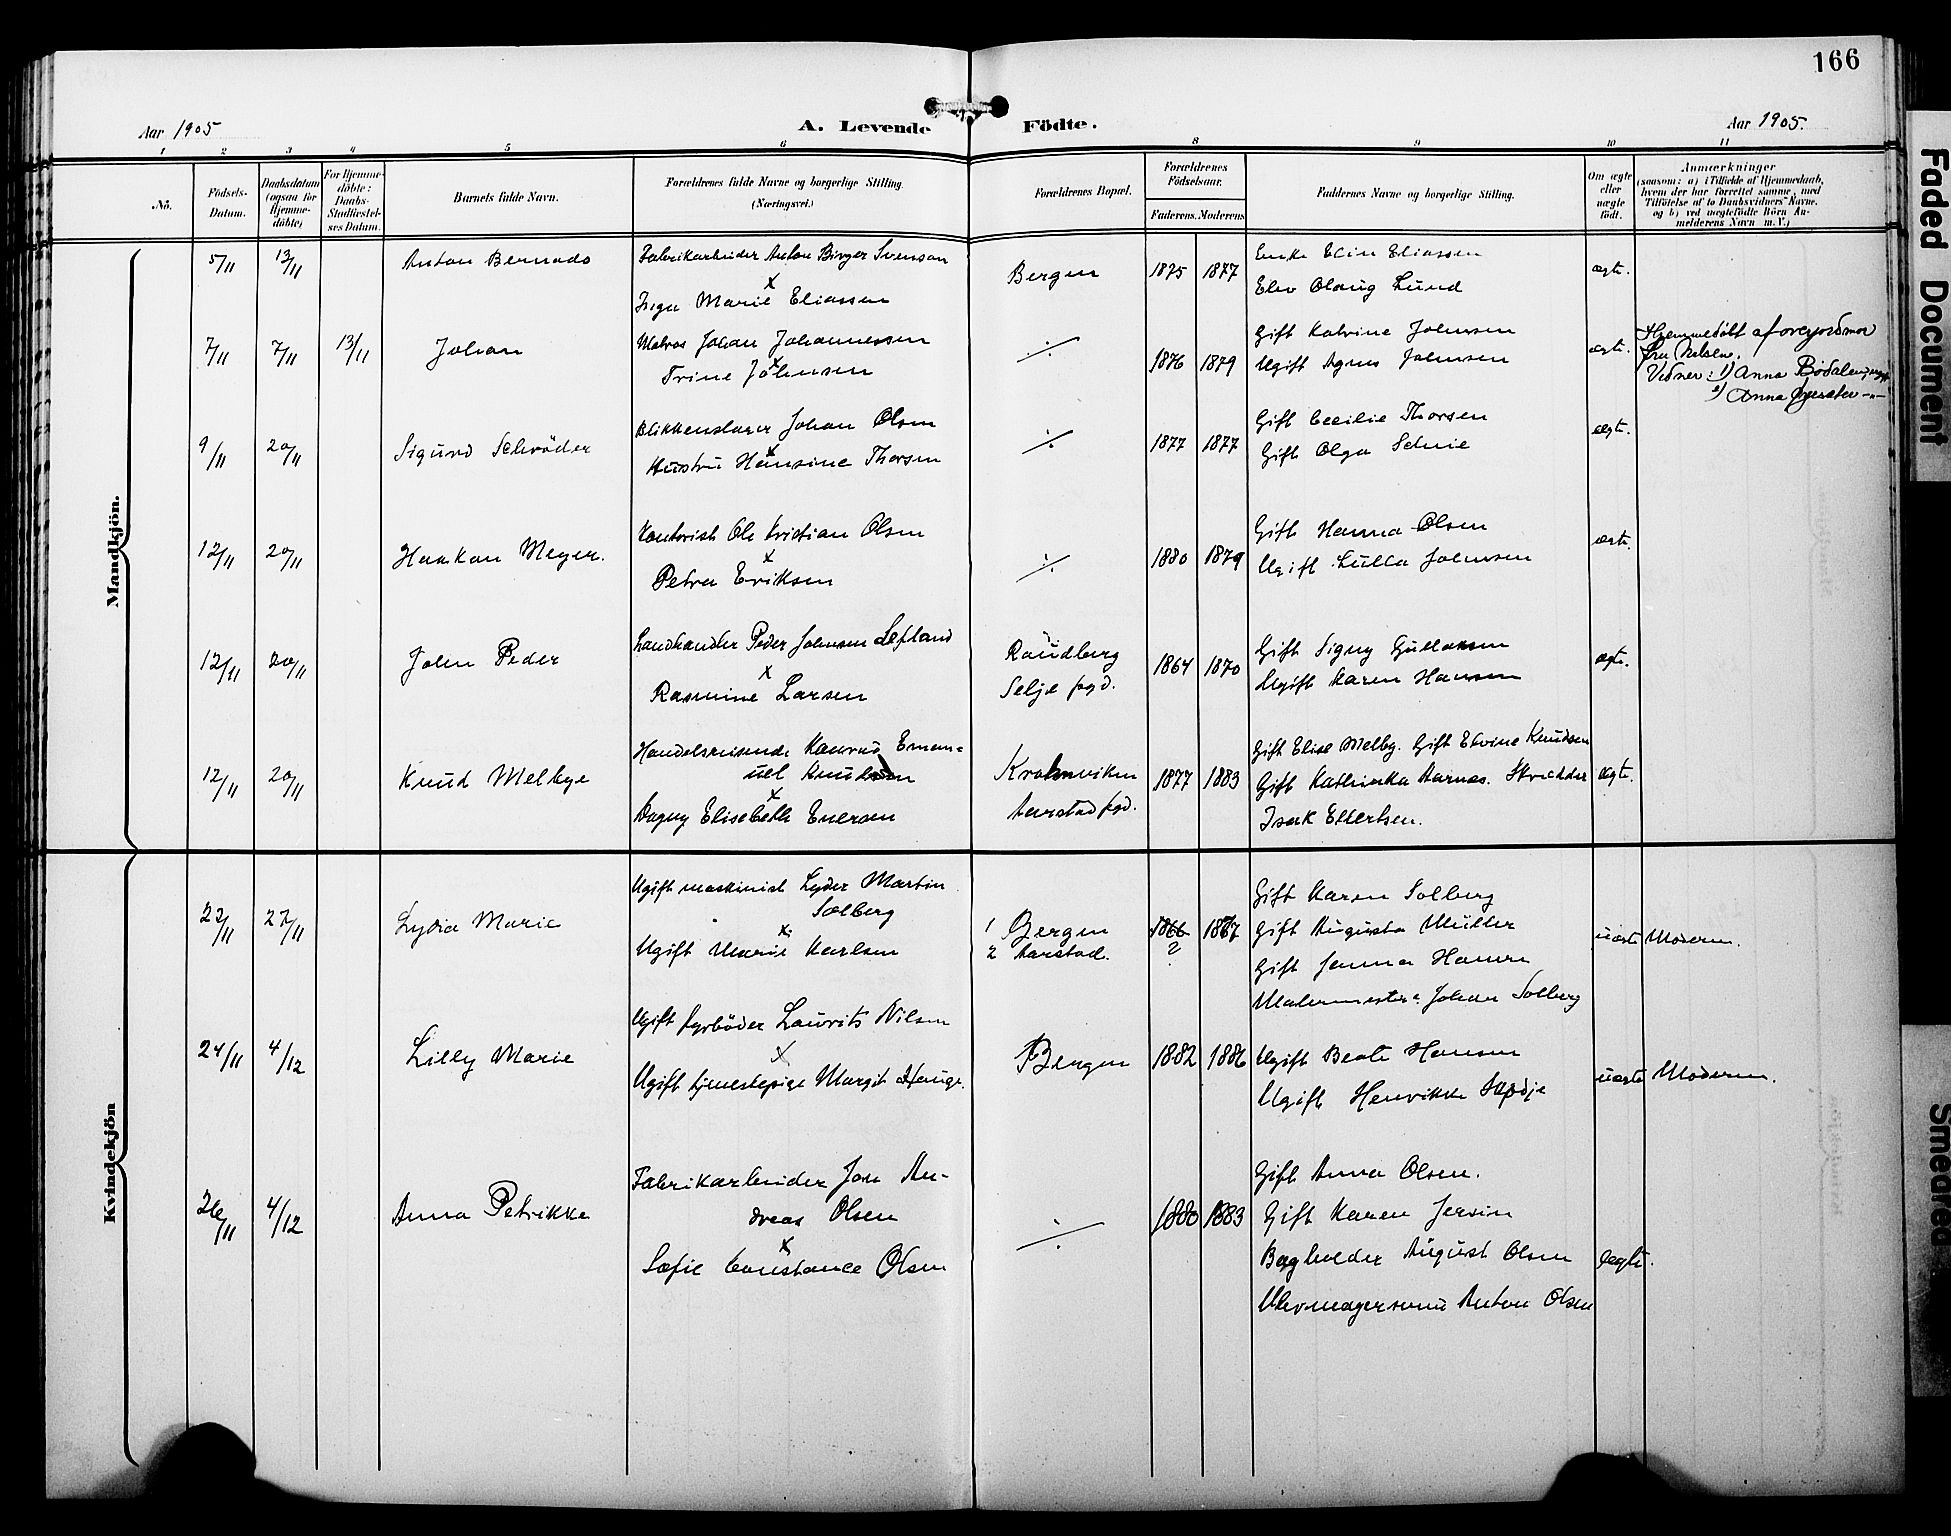 166
Aar 1905
A. Levende Födte.
Aar 1905.
1 2 3 4 5 6 8 9 10 11
No.
Födsels-Datum.
Daabsdatum (ogsaa for Hjemme-döbte)
For Hjemme-döbte: Daabs-Stadfæstel-ses Datum.
Barnets fulde Navn.
Forældrenes fulde Navne og borgerlige Stilling. (Næringsvei.)
Forældrenes Bopæl.
Forældrenes Födselsaar.
Faderens. Moderens
Faddernes Navne og borgerlige Stilling.
Om ægte eller uægte födt.
Anmærkninger
(saasom: a) i Tilfælde af Hjemmedaab,
hvem der har forrettet samme, med
Tilföielse af to Daabsvidners Navne,
og b) ved uægtefödte Börn An-
melderens Navn m.V.)
Mandkjön.
5/11 13/11 Anton Bernado
Fabrikarbeider Anton Birger Svenson
x
Inga Marie Eliassen
Bergen 1875 1877
Enke Elin Eliassen
Elev Olaug Lund
ægte.
7/11 7/11 13/11 Johan
Matros Johan Johannessen
x
Trine Johnsen
÷ 1876 1879
Gift Katrine Johnsen
Ugift Agnes Johnsen
ægte.
Hjemmedöbt af overjordmor
Fru Nilsen.
Vidner: 1) Anna Bödalen,
2) Anna -"-
9/11 20/11 Sigurd Schröder
Blikkenslager Johan Olsen
x
Hustru Hansine Thorsen
÷ 1877 1877
Gift Cecilie Thorsen
Gift Olga
ægte.
12/11 20/11 Haakon Meyer.
Kontorist Ole Kristian Olsen
x
Petra Eriksen
÷ 1880 1879
Gift Hanna Olsen
Ugift Lulla Johnsen
ægte.
12/11 20/11 John Peder
Landhandler Peder Johnsen Lefland
x
Rasmine Larsen
Raudberg
Selje pgd.
1864 1870
Gift Signy Gullaksen
Ugift Karen Hansen
ægte.
12/11 20/11 Knud Melbye
Handelsreisende Konrad Eman=
uel Knudsen
x
Dagny Elisebeth Enersen
Krohnviken
Aarstad pgd.
1877 1883
Gift Elise Melby. Gift Elvine Knudsen
Gift Kathinka Aarnes. Skrædder
Isak Ellertsen.
ægte.
Kvindekjön
22/11 27/11 Lydia Marie
Ugift maskinist Lyder Martin
Solberg
x
Ugift Marie Karlsen
1 Bergen
2 Aarstad.
1866 1867
?
Gift Karen Solberg
Gift Augusta Müller
Gift Jenna Hansen
Malermester Johan Solberg
uægte Moderen.
24/11 4/12 Lilly Marie
Ugift fyrböder Laurits Nilsen
x
Ugift tjenestepige Margit Hauge.
Bergen 1882 1886
Ugift Beate Hansen
Ugift Henrikke
uægte Moderen.
26/11 4/12 Anna Petrikke
Fabrikarbeider Jon An-
dreas Olsen
x
Sofie Constance Olsen
÷ 1880 1883
Gift Anna Olsen.
Gift Karen Jersin
Bogholder August Olsen
Uhrmagersvend Anton Olsen
ægte.
Faded Document
Smeared